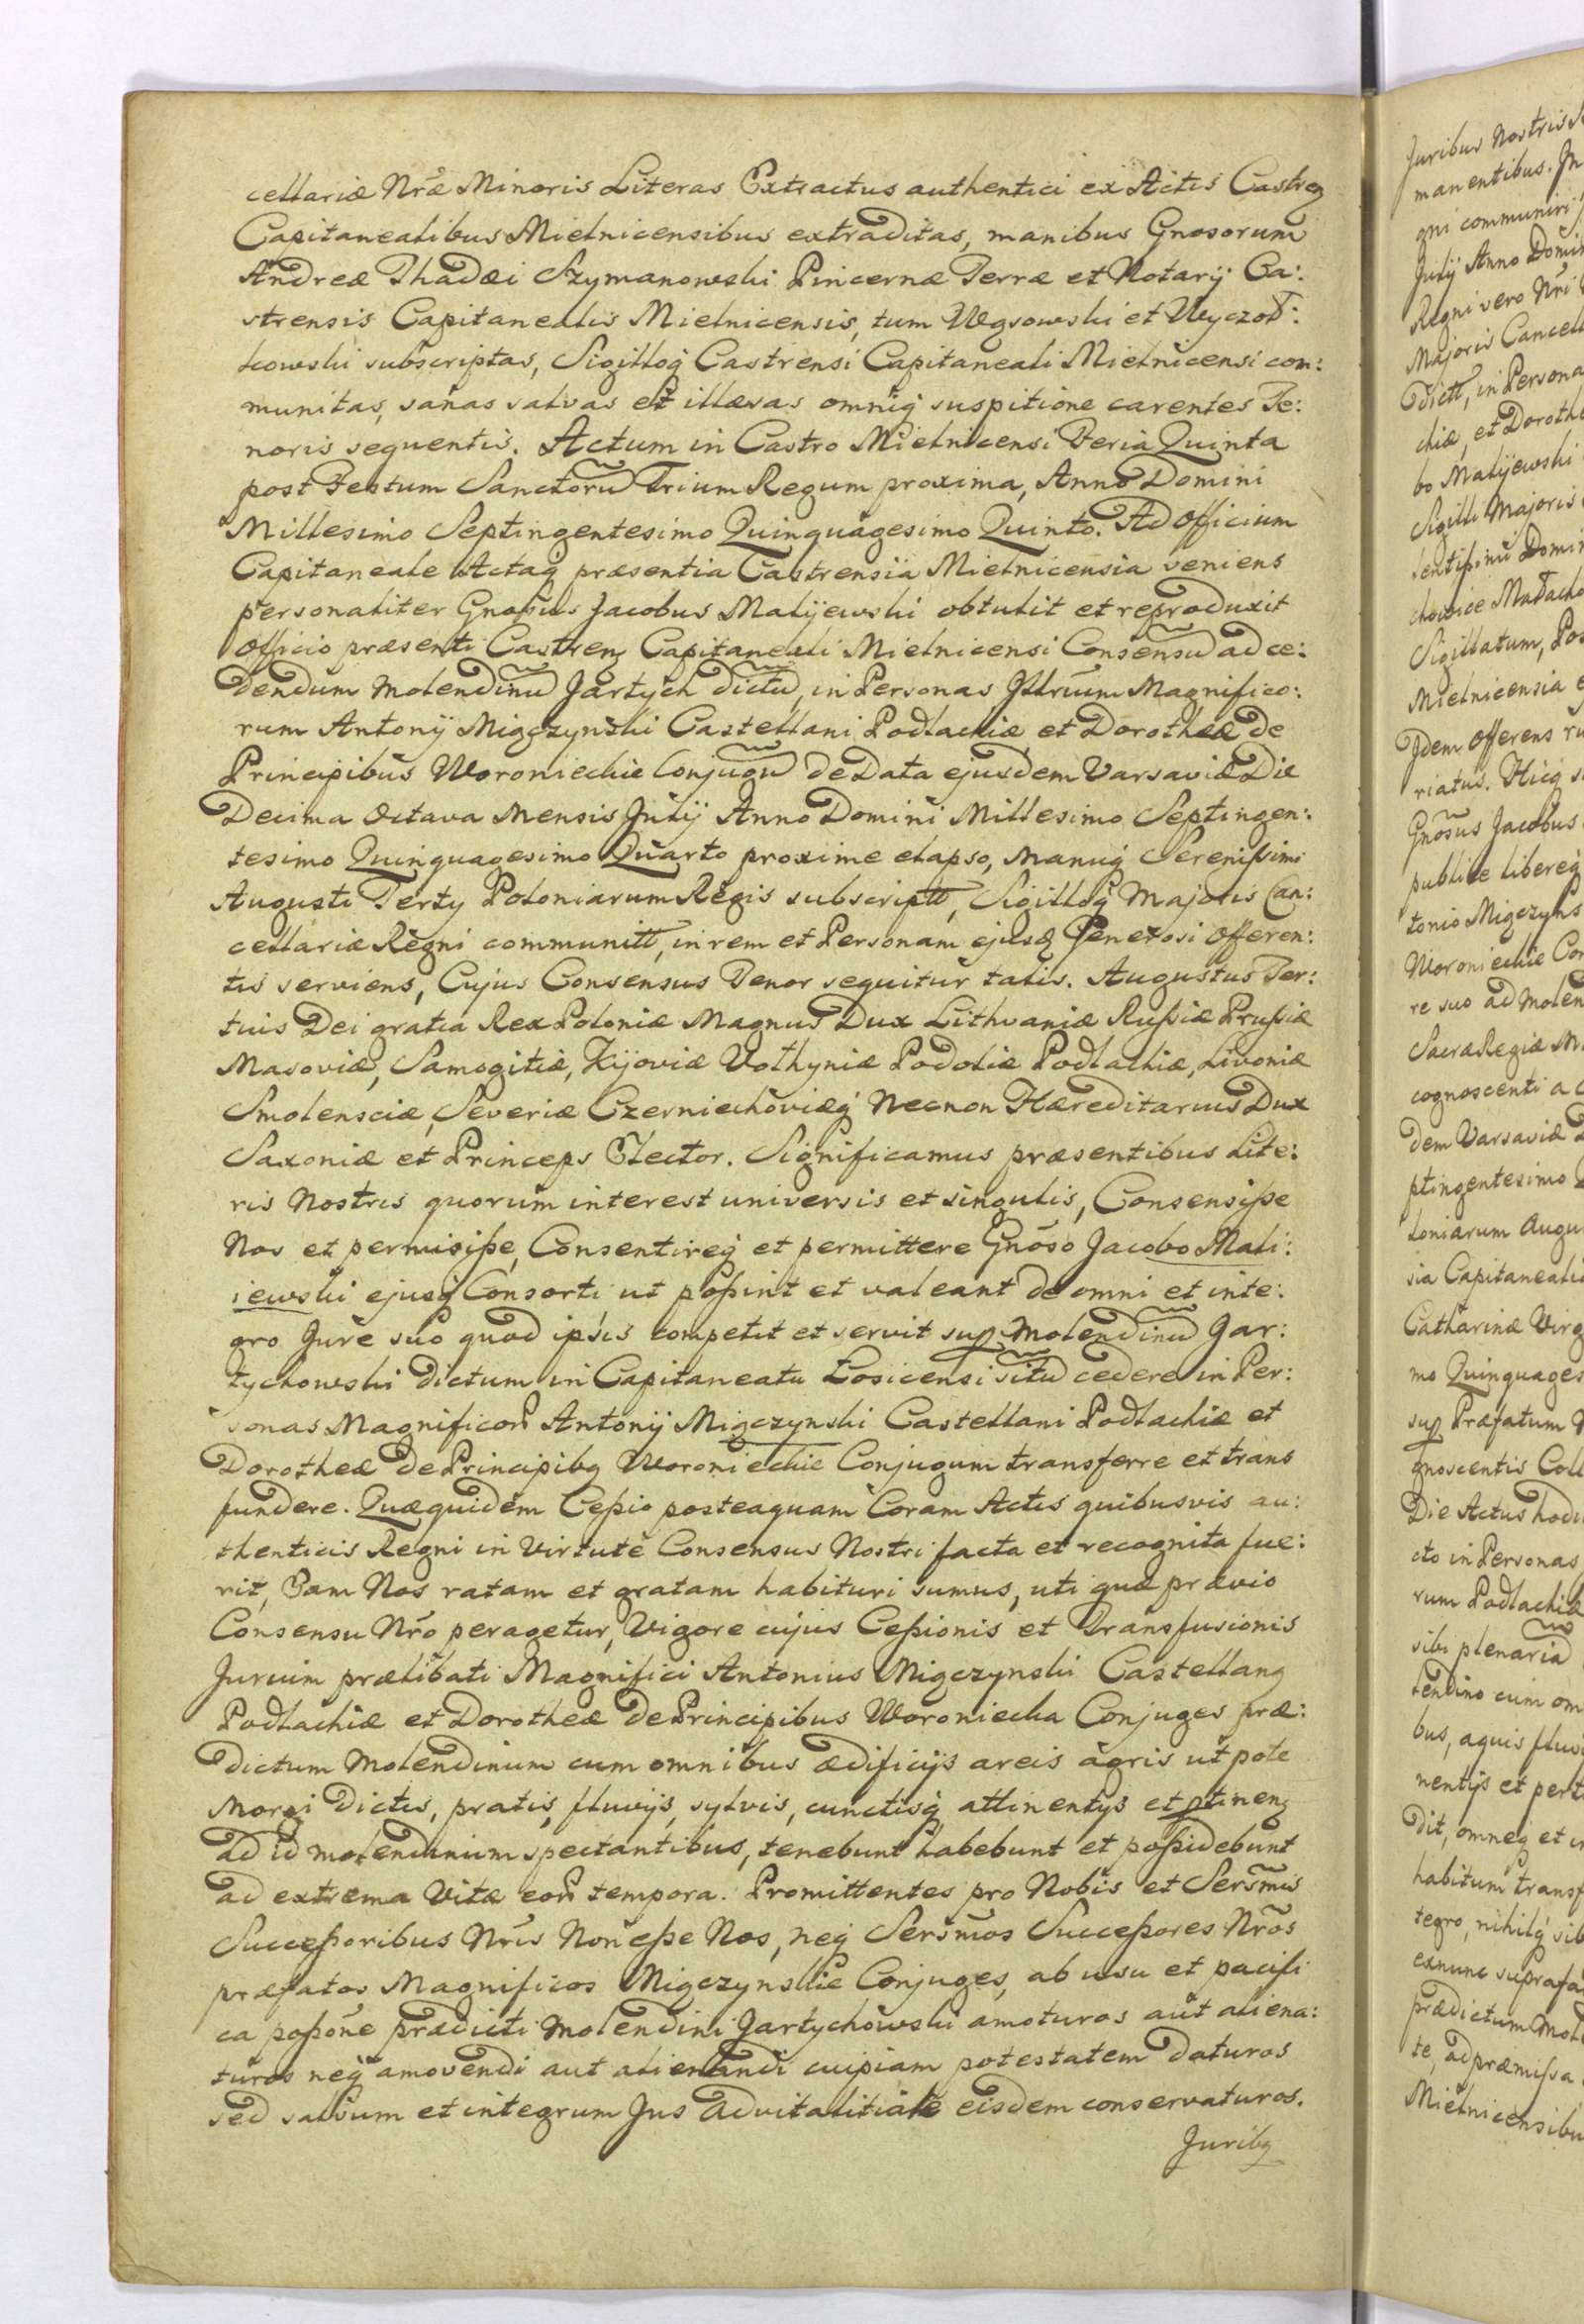 cellariæ Nræ Minoris Literas Extractus authentici ex Actis Castren
Capitanealibus Mielnicensibus extraditas, manibus Gnosorum
Andreæ Thadæi Szymanowski Pincernæ Terræ et Notarij Ca:
strensis Capitanealis Mielnicensis, tum Węsowski et Wyczoł:
kowski subscriptas, Sigilloq Castrensi Capitaneali Mielnicensi com:
munitas, sanas salvas et illæsas omniq suspitione carentes Te:
noris sequentis. Actum in Castro Mielnicensi Feria Quinta
post Festum Sanctorũ Trium Regum proxima, Anno Domini
Millesimo Septingentesimo Quinquagesimo Quinto. Ad Officium
Capitaneale Actaq præsentia Castrensia Mielnicensia veniens
personaliter Gnosus Jacobus Malijewski obtulit et reproduxit
Officio præsenti Castren Capitaneali Mielnicensi Consensũ ad ce:
dendum Molendinũ Jartych dictũ, in Personas Jllrium Magnifico:
rum Antonij Miączynski Castellani Podlachiæ et Dorotheæ de
Principibus Woroniechie Conjuğũ de Data ejusdem Varsaviæ Die
Decima Octava Mensis Julij Anno Domini Millesimo Septingen:
tesimo Quinquagesimo Quarto proxime elapso, Manuq Serenissimi
Augusti Tertÿ Poloniarum Regis subscriptt, Sigilloq Majoris Can:
cellariæ Regni communitt, in rem et Personam ejusq Generosi Offeren:
tis serviens, Cujus Consensus Tenor sequitur talis. Augustus Ter:
tuis Dei gratia Rex Poloniæ Magnus Dux Lithvaniæ Russiæ Prussiæ
Masoviæ, Samogitiæ, Kijoviæ Volhyniæ Podoliæ Podlachiæ, Livoniæ
Smolensciæ, Severiæ Czerniechoviæq Necnon Hæreditarius Dux
Saxoniæ et Princeps Elector. Significamus præsentibus Lite:
ris Nostris quorum interest universis et singulis, Consensisse
Nos et permisisse, Consentireq et permittere Gnoso Jacobo Mali:
iewski ejusq Consorti ut possint et valeant de omni et inte:
gro Jure suo quod ipsis competit et servit sup Molendinũ Jar:
tychowski dictum in Capitaneatu Łosicensi sitũ cedere in Per:
sonas Magnificor Antonij Miączynski Castellani Podlachiæ et
Dorotheæ de Principibq Woroniechie Conjugum transferre et trans
fundere. Quæquidem Cessio posteaquam Coram Actis quibusvis au:
thenticis Regni in virtute Consensus Nostri facta et recognita fue:
rit, Eam Nos ratam et gratam habituri sumus, uti quæ prævio
Consensu Nro peragetur, Vigore cujus Cessionis et Transfusionis
Jurium prælibati Magnifici Antonius Miączynski Castellanq
Podlachiæ et Dorotheæ de Principibus Woroniecka Conjuges præ:
dictum Molendinum cum omnibus ædificijs areis agris ut pote
Morgi dictis, pratis, fluvijs, sylvis, cunctisq attinentÿs et ptinen
ad id molendinum spectantibus, tenebunt habebunt et possidebunt
ad extrema Vitæ eor tempora. Promittentes pro Nobis et Sersmis
Successoribus Nris Non esse Nos, neq Sersmos Successores Nros
præfatos Magnificos Miączynskie Conjuges, ab usu et pacifi
ca possone prædicti Molendini Jartychowski amoturos aut aliena:
turos neq amovendi aut alienandi cuipiam potestatem daturos
sed salvum et integrum Jus Advitalitiale eisdem conservaturos.
Juribq
Juribus Nostris
manentibus. Jn
gni communiri
Julij Anno Domi
Regni vero Nri
Majoris Cancell
dictt, in Persona
chiæ, et Doroth
bo Malijewski
Sigilli Majoris
Domi
chowice Małacho
Sigillatum, Pos
Mielnicensia
Jdem offerens
riatus. Hicq
Gnosus Jacobus
publice libereq
tonio Miączyns
Woroniechie Con
re suo ad Molen
Sacræ Regiæ M
cognoscenti a
dem Varsaviæ
ptingentesimo
loniarum Augu
sia Capitaneali
Catharinæ Virg
mo Quinquages
sup Præfatum
gnoscentis Coll
Die Actus hodi
cto in Personas
rum Podlachiæ
sibi plenariã
lendino cum om
bus, aquis fluv
nentijs et perti
dit, omneq et
habitum transf
tegro, nihilq sib
exnunc suprafa
prædictum Mol
te, ad præmissa
Mielnicensibu